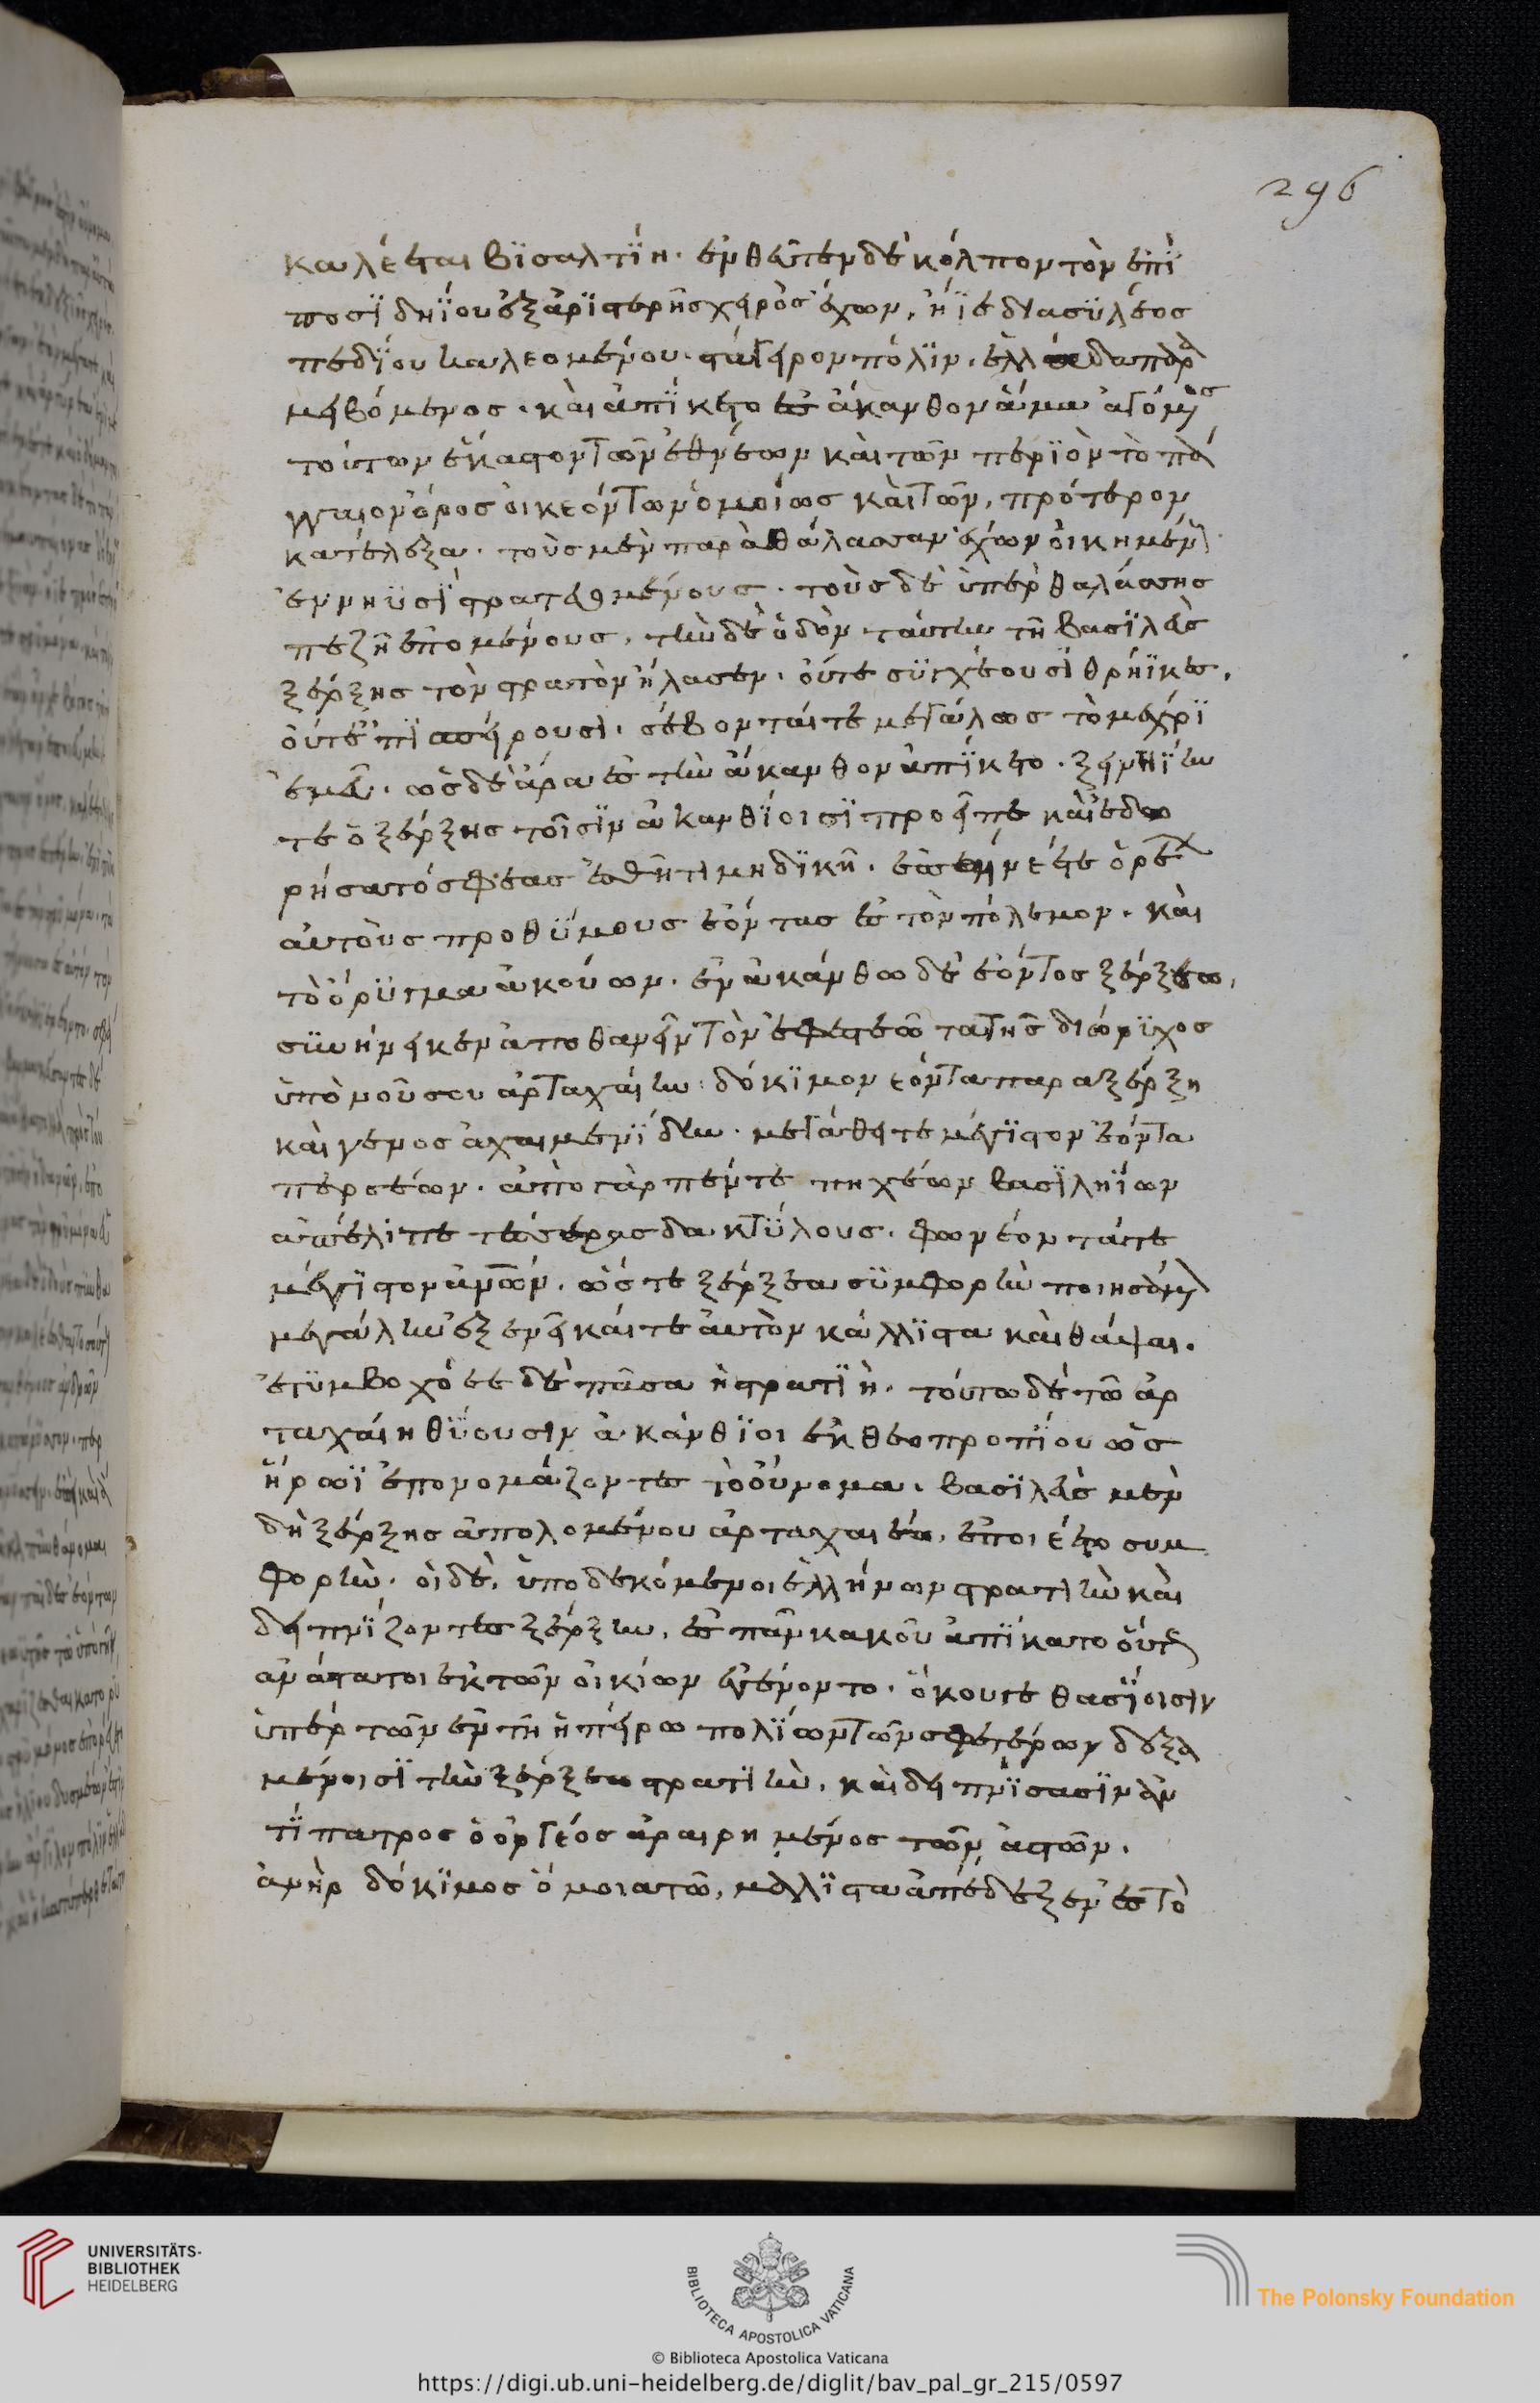 296
καλέεται βϊσαλτΐη. ἐνθεῦτεν δὲ κόλπον τὸν ἐπὶ
ποσϊδηΐου ἐξ ἀρϊστερῆς χειρὸς ἔχων, ἤϊε διὰ συλέος
πεδΐου καλεομένου. στάγειρον πόλϊν. ἑλλάδα παρα
μειβόμενος. καὶ ἀπΐκετο ἐς ἄκανθον ἅμα ἀγόμενος
τούτων ἕκαστον τῶν ἐθνέων καὶ τῶν περὶ ὂν τὸ πα
γγαιον ὄρος οἰκεόντων ὁμοίως καὶ τῶν, πρότερον
κατέλεξα. τοὺς μὲν παρὰ θάλασσαν ἔχων οἰκημένους
ἐν νηϋσὶ στρατευομένους. τοὺς δὲ ὑπὲρ θαλάσσης
πεζῆ ἑπομένους, τὴν δὲ ὁδὸν ταύτην τῆ βασϊλεὺς
ξέρξης τὸν στρατὸν ἤλασεν. οὔτε συγχέουσϊ θρήϊκες,
οὔτ' ἐπϊσπείρουσι. σέβονταί τε μεγάλως τὸ μέχρϊ
ἐμεῦ. ὡς δὲ ἄρα ἐς τὴν ἄκανθον ἀπΐκετο. ξεινηΐην
τε ὁ ξέρξης τοῖσϊν ἀκανθΐοισϊ προεῖπε καὶ ἐδω
ρήσατό σφεας ἐσθῆτι μηδϊκῆ. ἐπαίνεέ τε ὁρέων
αὐτοὺς προθύμους ἐόντας ἐς τὸν πόλεμον. καὶ
τὸ ὄρυγμα ἀκούων. ἐν ἀκάνθω δὲ ἐόντος ξέρξεω,
συνήνεικεν ἀποθανεῖν τὸν ἐφεστεῶτα τῆς διώρϋχος
ὑπὸ νούσου ἀρταχαίην δόκϊμον ἐόντα παρὰ ξέρξη
καὶ γένος ἀχαιμενΐδην. μεγάθεί τε μέγϊστον ἐόντα
περσέων. ἀπὸ γὰρ πέντε πηχέων βασϊληΐων
ἀπέλιπε τέσσερας δακτΰλους. φωνέοντά τε
μέγϊστον ἀνθρώπων. ὥστε ξέρξεα συμφορὴν ποιησάμενον
μεγάλην ἐξενεῖκαί τε αὐτὸν κάλλϊστα καὶ θάψαι.
ἐτϋμβοχόεε δὲ πᾶσα ἡ στρατϊή. τούτω δὲ τῶ ἀρ
ταχαίη θΰουσιν ἀκάνθϊοι ἐκ θεοπροπΐου ὡς
ἥρωϊ ἐπονομάζοντες τὸ οὔνομα. βασϊλεὺς μὲν
δὴ ξέρξης ἀπολομένου ἀρταχαίεω, ἐποιέετο συμ
φορήν. οἱ δὲ, ὑποδεκόμενοι ἑλλήνων στρατιὴν καὶ
δειπνΐζοντες ξέρξην, ἐς πᾶν κακοῦ ἀπΐκατο οὕτω
ἀνάστατοι ἐκ τῶν οἰκίων ἐγένοντο. ὅκου γε θασΐοισιν
ὑπὲρ τῶν ἐν τῆ ἠπείρω πολΐων τῶν σφετέρων δεξα
μένοισϊ τὴν ξέρξεω στρατιὴν, καὶ δειπνΐσασϊν ἀν
τΐπατρος ὁ ὀργέος ἀραιρημένος τῶν ἀστῶν.
ἀνὴρ δόκϊμος ὅμοια τῶ, μάλϊστα ἀπέδεξεν ἐς τὸ
UNIVERSITÄTS-
BIBLIOTHEK
HEIDELBERG
BIBLIOTECA APOSTOLICA VATICANA
The Polonsky Foundation
© Biblioteca Apostolica Vaticana
https://digi.ub.uni-heidelberg.de/diglit/bav_pal_gr_215/0597